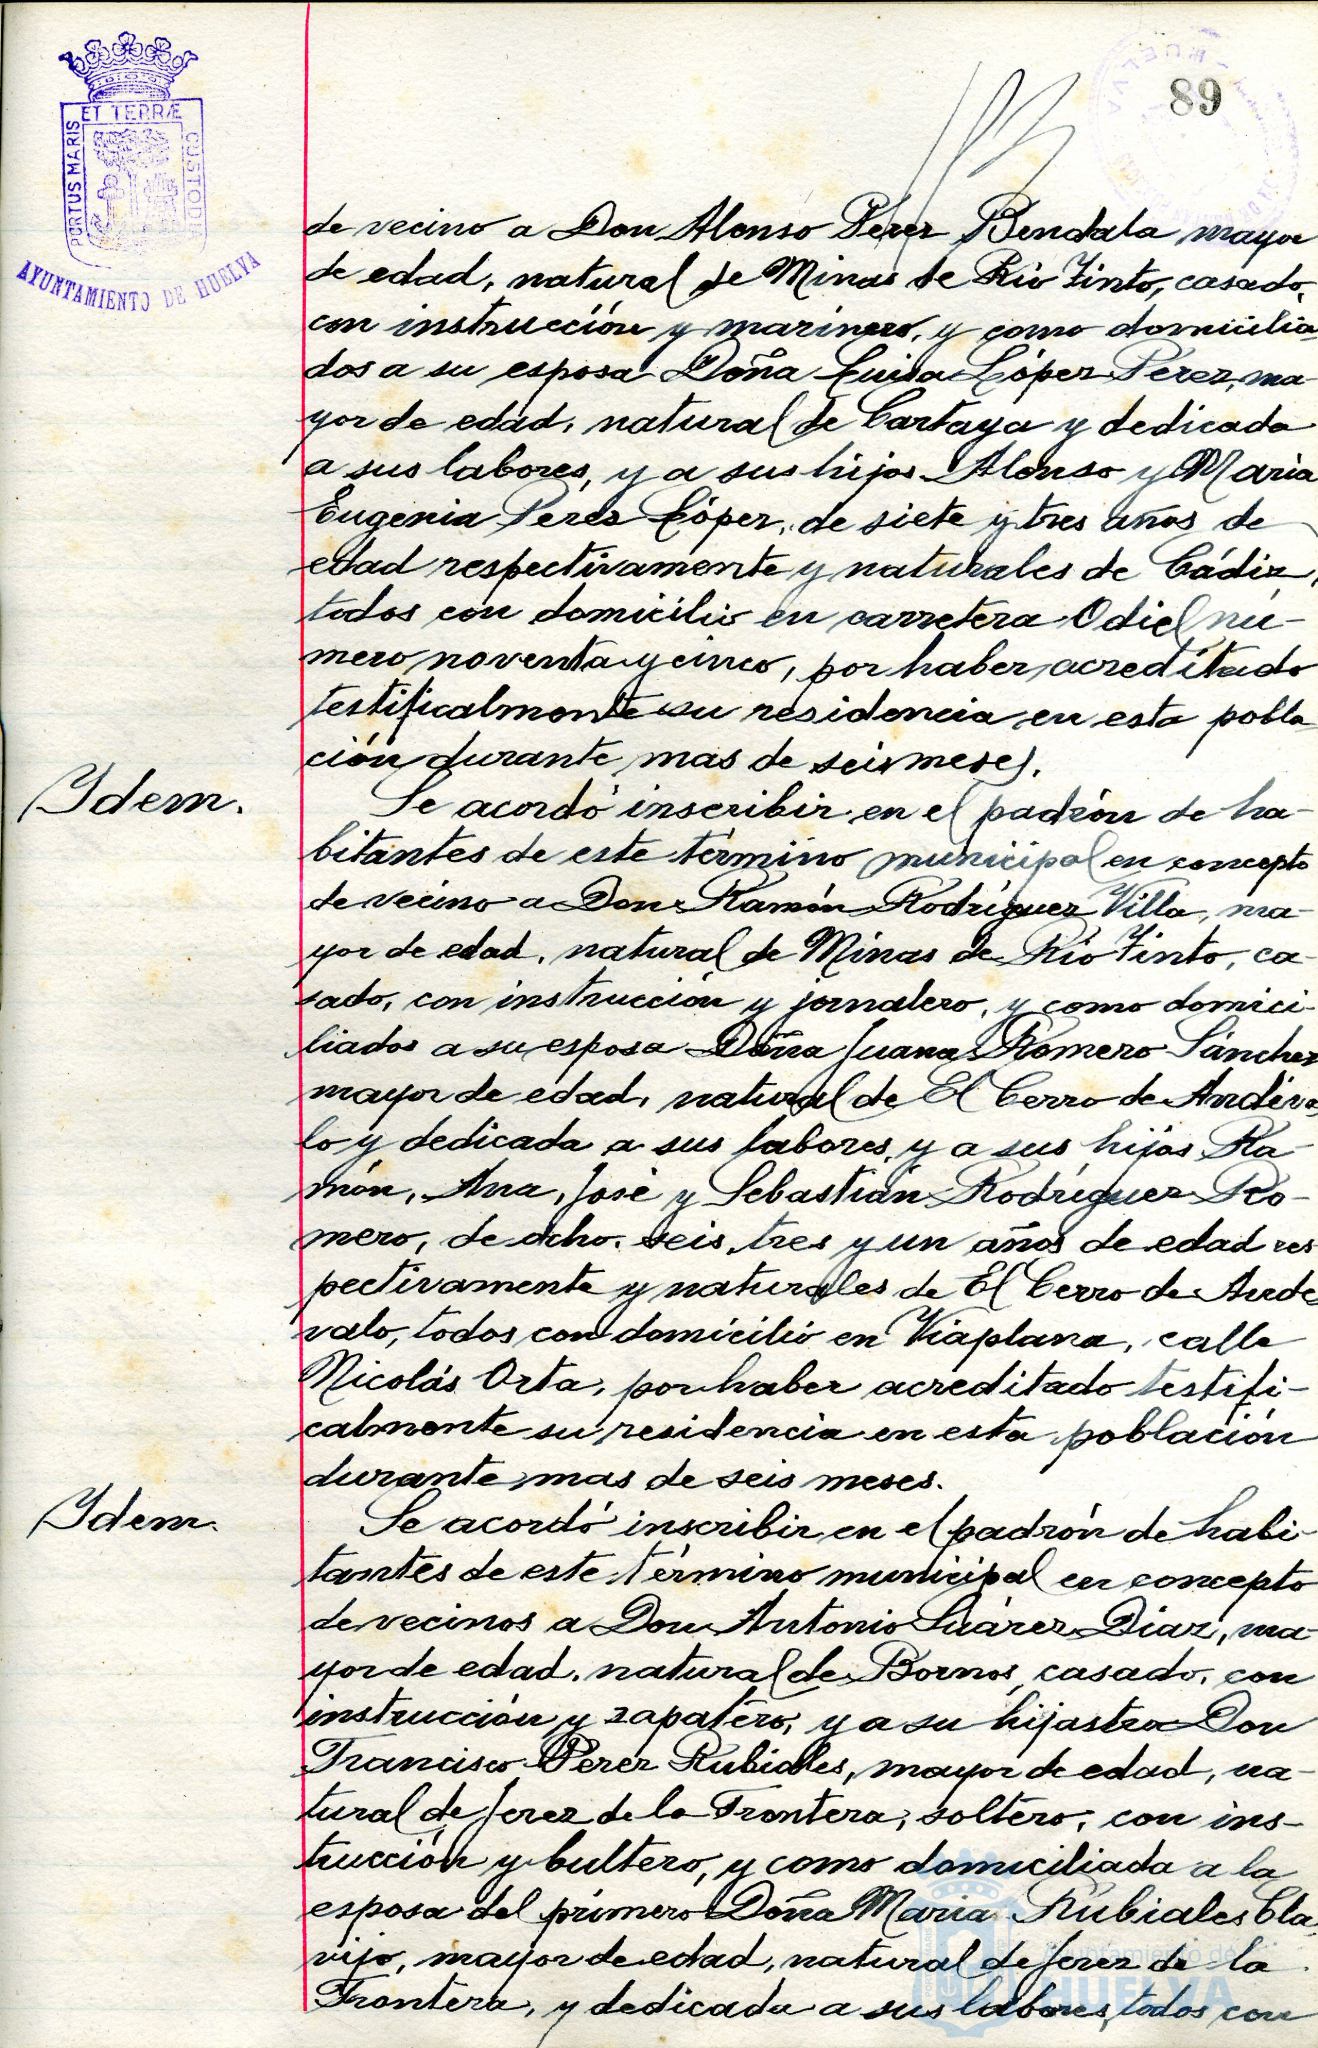 89
ET TERRÆ
PORTUS MARIS
CUSTODIA
AYUNTAMIENTO DE HUELVA
de vecino a Don Alonso Pérez Bendala mayor
de edad, natural de Minas de Rio Tinto, casado,
con instrucción y marinero, y como domicilia-
dos a su esposa Doña Luisa López Pérez, ma-
yor de edad, natural de Cartaya y dedicada
a sus labores, y a sus hijos Alonso y Maria
Eugenia Perez López, de siete y tres años de
edad respectivamente y naturales de Cádiz,
todos con domicilio en carretera Odiel, nú-
mero noventa y cinco, por haber acreditado
testificalmente su residencia en esta pobla-
ción durante mas de seis meses.
Ydem.
Se acordó inscribir en el padrón de ha-
bitantes de este término municipal en concepto
de vecino a Don Ramón Rodríguez Villa, ma-
yor de edad, natural de Minas de Rio Tinto, ca-
sado, con instrucción y jornalero, y como domici-
liados a su esposa Doña Juana Romero Sánchez
mayor de edad, natural de El Cerro de Andéva-
lo y dedicada a sus labores, y a sus hijos Ra-
món, Ana, José y Sebastián Rodríguez Ro-
mero, de ocho, seis, tres y un años de edad res
pectivamente y naturales de El Cerro de Ande
valo, todos con domicilio en Viaplana, calle
Nicolás Orta, por haber acreditado testifi-
calmente su residencia en esta población
durante mas de seis meses.
Ydem.
Se acordó inscribir en el padrón de habi-
tantes de este término municipal en concepto
de vecinos a Don Antonio Suárez Diaz, ma-
yor de edad, natural de Bornos, casado, con
instrucción y zapatero, y a su hijastro Don
Francisco Perez Rubiales, mayor de edad, na-
tural de Jerez de la Frontera, soltero, con ins-
trucción y bultero, y como domiciliada a la
esposa del primero Doña Maria Rubiales Cla
vijo, mayor de edad, natural de Jerez de la
Frontera, y dedicada a sus labores, todos con
Ayuntamiento de
HUELVA